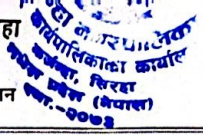 हा
नगरपालिका
कार्यपालिकाको कार्यालय
सिरहा
प्रदेश (नेपाल)
स्था.-२०७३
न